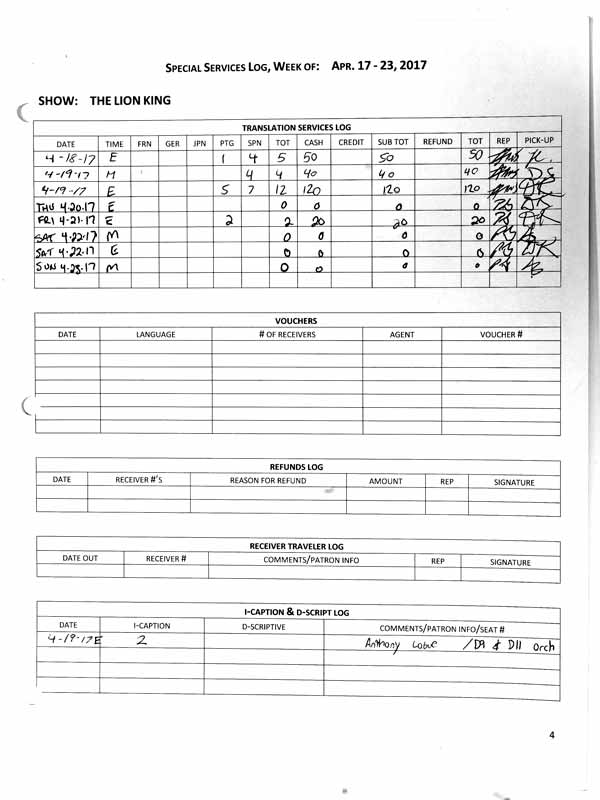 SPECIAL SERVICES LOG, WEEK OF: APR. 17 - 23, 2017
SHOW: THE LION KING
TRANSLATION SERVICES LOG
DATE TIME FRN GER JPN PTG SPN TOT CASH CREDIT SUB TOT REFUND TOT REP PICK-UP
4-18-17 E 1 4 5 50 50 50
4-19-17 M 4 4 40 40 40 DS
4-19-17 E 5 7 12 120 120 120 DK
THU 4.20.17 E 0 0 0 0 DK
FRI 4-21.17 E 2 2 20 20 20 DK
SAT 4.22.17 M 0 0 0 0
SAT 4.22.17 E 0 0 0 0 DK
SUN 4.23.17 M 0 0 0 0
VOUCHERS
DATE LANGUAGE # OF RECEIVERS AGENT VOUCHER #
REFUNDS LOG
DATE RECEIVER #'S REASON FOR REFUND AMOUNT REP SIGNATURE
RECEIVER TRAVELER LOG
DATE OUT RECEIVER # COMMENTS/PATRON INFO REP SIGNATURE
I-CAPTION & D-SCRIPT LOG
DATE I-CAPTION D-SCRIPTIVE COMMENTS/PATRON INFO/SEAT #
4-19-17E 2 Anthony / D9 & D11 Orch
4